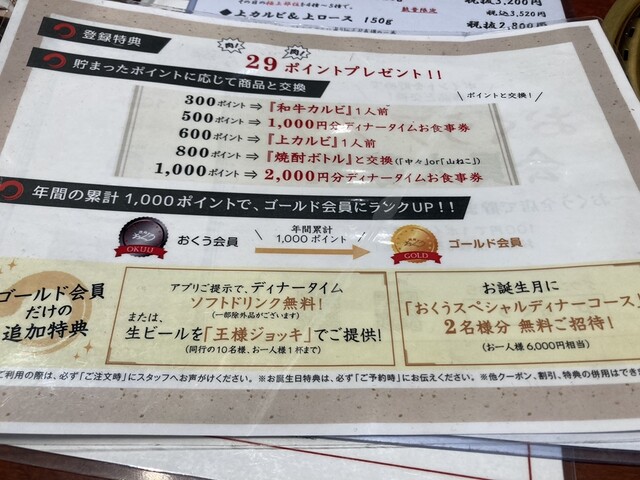 数量限定
税抜3,200円
税込3,520円
◆上カルビ&上ロース 150g
税抜2,800円
登録特典
肉! 肉!
29 ポイントプレゼント!!
貯まったポイントに応じて商品と交換
ポイントと交換!
300ポイント⇒『和牛カルビ』1人前
500ポイント⇒1,000円分ディナータイムお食事券
600ポイント⇒『上カルビ』1人前
800ポイント⇒『焼酎ボトル』と交換(「中々」or「山ねこ」)
1,000ポイント⇒2,000円分ディナータイムお食事券
年間の累計1,000ポイントで、ゴールド会員にランクUP!!
OKUU
おくう会員
年間累計
1,000ポイント
GOLD
ゴールド会員
ゴールド会員
だけの
追加特典
アプリご提示で、ディナータイム
ソフトドリンク無料!
(一部除外品がございます)
または、
生ビールを「王様ジョッキ」でご提供!
(同行の10名様、お一人様1杯まで)
お誕生月に
「おくうスペシャルディナーコース」
2名様分 無料ご招待!
(お一人様6,000円相当)
ご利用の際は、必ず「ご注文時」にスタッフへお声がけください。※お誕生日特典は、必ず「ご予約時」にお伝えください。※他クーポン、割引、特典の併用はでき